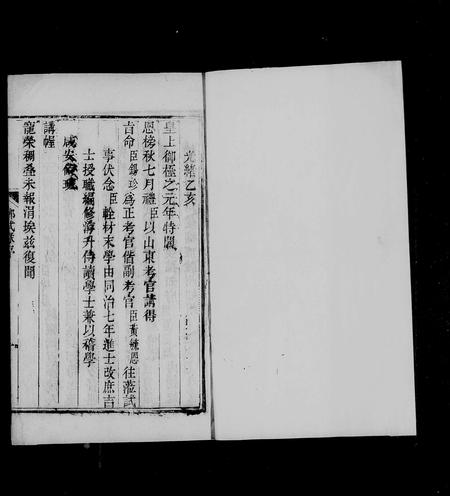 光緒乙亥
皇上御極之元年特開
恩榜秋七月禮臣以山東考官請得
旨命臣錫珍爲正考官偕副考官臣黃毓恩往蒞試
事伏念臣輇材末學由同治七年進士改庶吉
士授職編修洊升侍讀學士兼以稽學
咸安
講幄
寵榮稠叠未報涓埃兹復聞